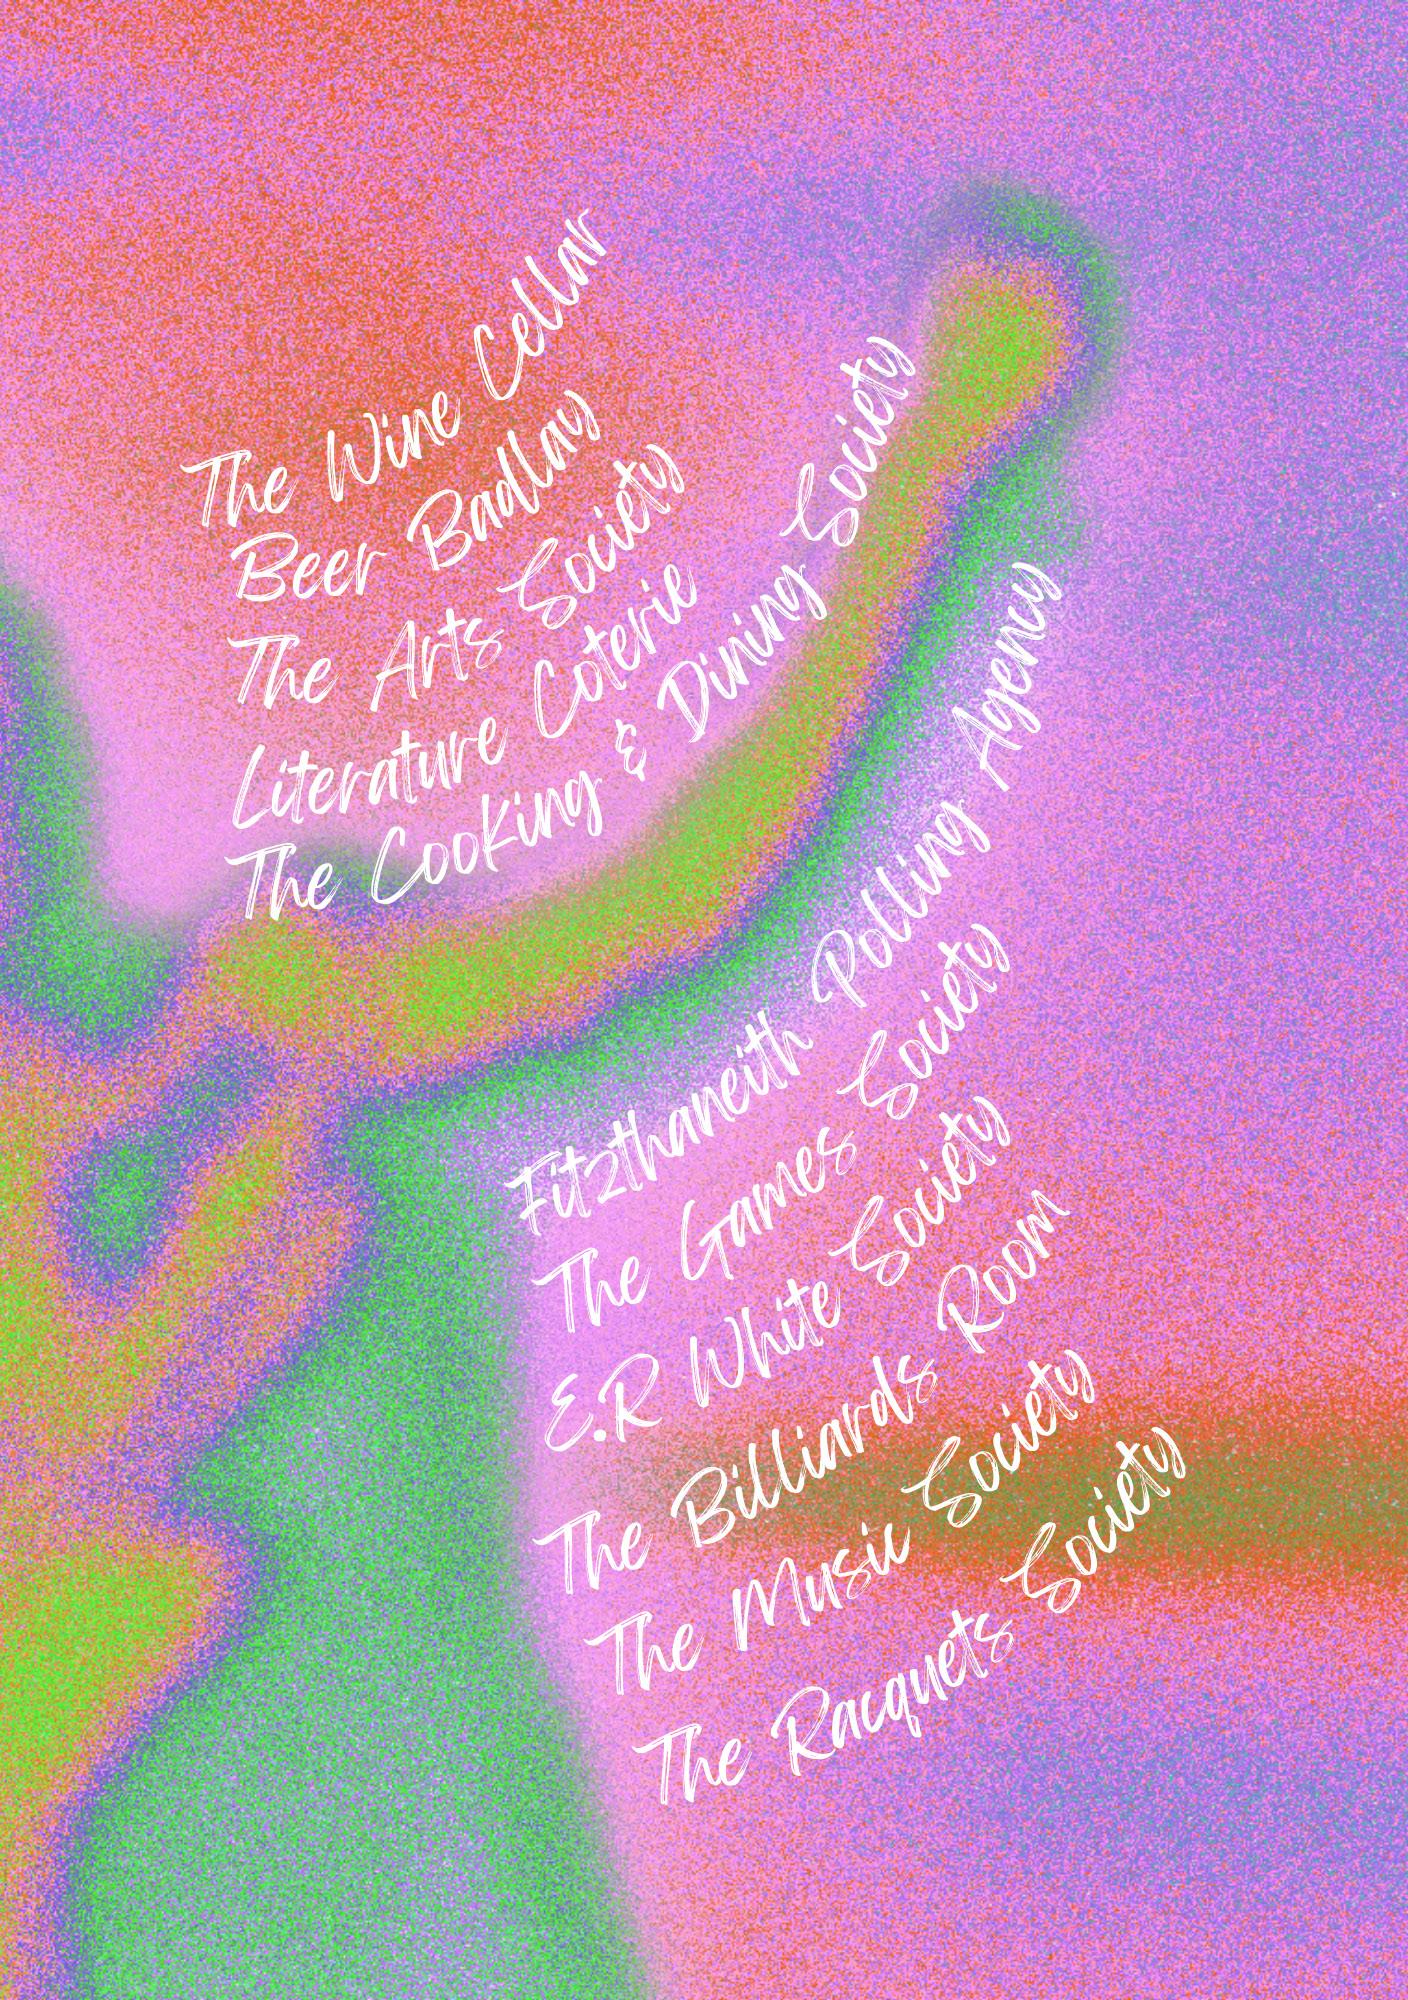 The Wine Cellar
Beer Badlay
The Arts Society
Literature Coterie
The Cooking & Dining Society
Fitzthaneith Polling Agency
The Games Society
E.R White Society
The Billiards Room
The Music Society
The Racquets Society